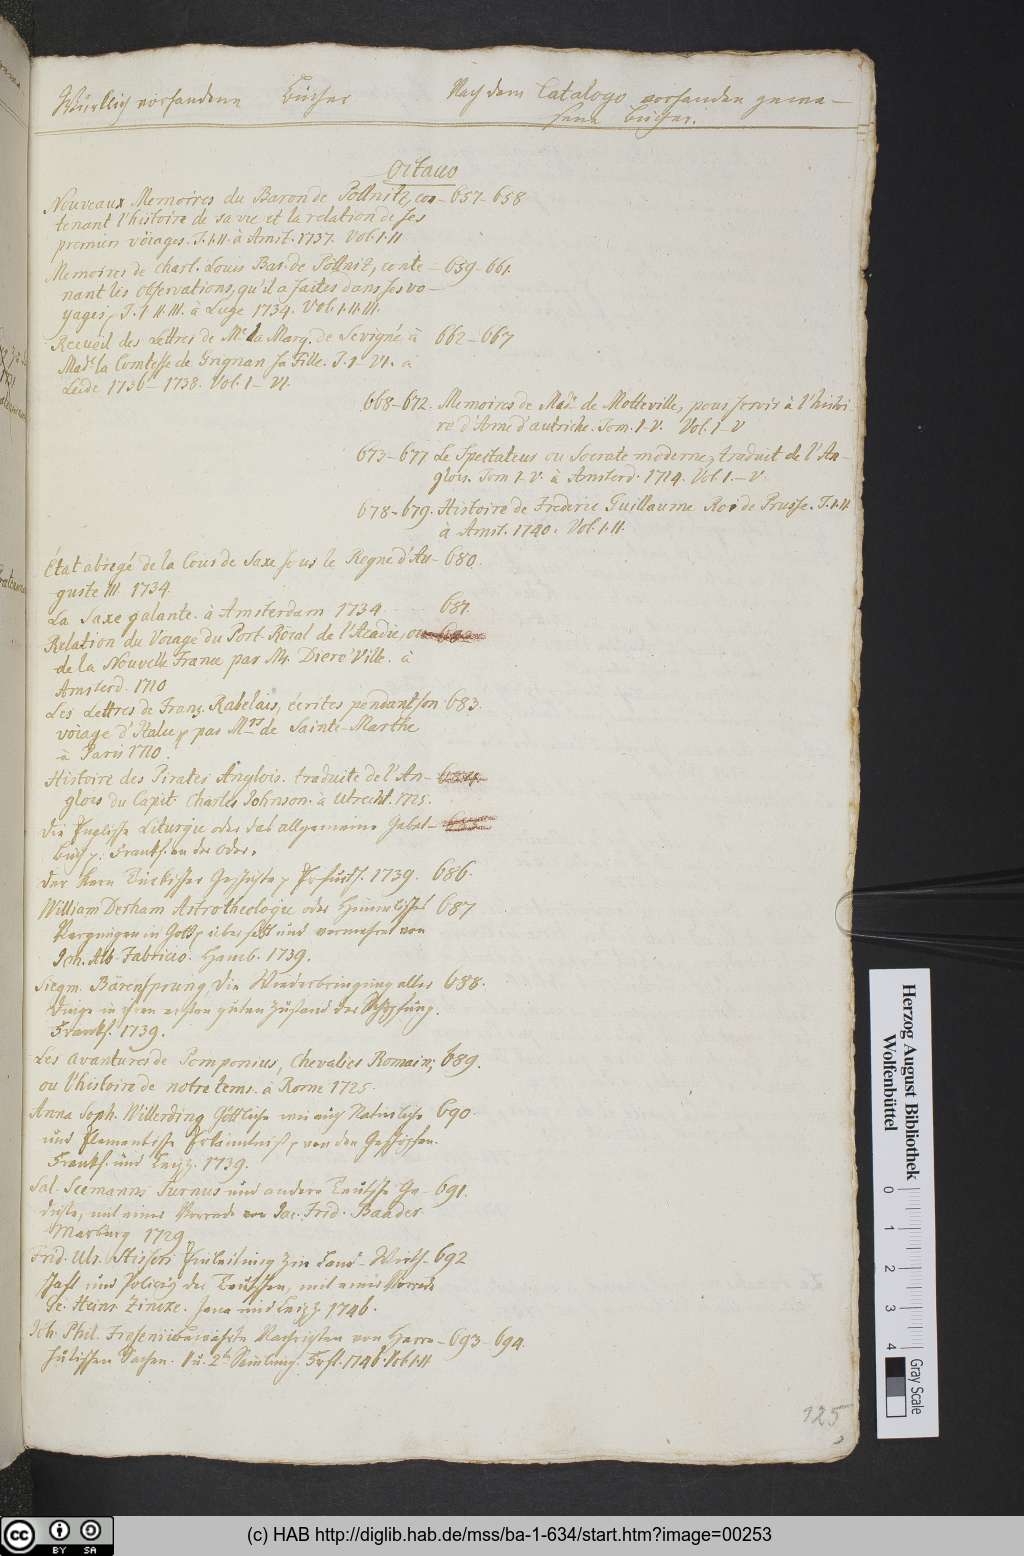 Würcklich vorhandene Bücher
Nach dem Catalogo vorhanden gewe-
sene Bücher.
Octavo
Nouveaux Memoires du Baron de Pöllnitz, con- 657-658
tenant l'histoire de sa vie et la relation de ses
premiers voiages. T. I. II. à Amst. 1737. Vol. I. II
Memoires de Charl. Louis Bar. de Pöllnitz, conte- 659-661.
nant les Observations, qu'il a faites dans ses vo-
yages, T. I. II. III. à Liege 1734. Vol. I. II. III.
Recueil des Lettres de Me la Marq. de Sevigné, à 662-667
Made la Comtesse de Grignan sa Fille. T. I-VI. a
Leide 1736-1738. Vol. I-VI.
668-672. Memoires de Made de Motteville, pour servir à l'histoi-
re d'Anne d'autriche. Tom. I-V. Vol. I-V
673-677 Le Spectateur ou Socrate moderne, traduit de l'An-
glois. Tom I-V. à Amsterd. 1714. Vol. I.-V.
678-679. Histoire de Frederic Guillaume Roi de Prusse. T. I. II
à Amst. 1740. Vol. I. II.
État abregé de la Cour de Saxe sous le Regne d'Au- 680.
guste III. 1734.
La Saxe galante. à Amsterdam 1734. 681.
Relation du Voiage du Port-Roial de l'Acadie, ou
de la Nouvelle France par Mr. Diereville. à
Amsterd. 1710
Les Lettres de Franç. Rabelais, écrites pendant son 683.
voiage d'Italie, par Mrs de Sainte-Marthe
à Paris 1710.
Histoire des Pirates Anglois. traduite de l'An- 684.
glois du Capit. Charles Johnson. à Utrecht. 1725.
Die Englische Liturgie oder das allgemeine Gebet-
buch. Franckf. an der Oder.
Der Kern Türckischer Geschichte, Erfurth. 1739. 686.
William Derham Astrotheologie oder Himmlisches 687
Vergnügen in Gott, übersetzt und vermehrt von
Joh. Alb. Fabricio. Hamb. 1739.
Siegm. Bärensprung Die Wiederbringung aller 688.
Dinge in ihren ersten guten Zustand der Schöpfung.
Franckf. 1739.
Les Avantures de Pomponius, Chevalier Romain, 689.
ou l'histoire de notre tems. à Rome 1725.
Anna Soph. Willerding Göttliche wie auch Natürliche 690.
und Elementische Erkänntniß, von den Geschöpfen.
Franckf. und Leipz. 1739.
Sal. Seemanns Turnus und andere Teutsche Ge- 691.
dichte, mit einer Vorrede von Jac. Frid. Baader
Marburg 1729
Frid. Ulr. Stisseri Einleitung zur Land-Wirth- 692
schaft und Policey der Teutschen, mit einer Vorrede
Ge. Heinr. Zincke. Jena und Leipz. 1746.
Joh. Phil. Fresenii bewährte Nachrichten von Herrn- 693-694.
hutischen Sachen. 1 u. 2te Samlung. Frft. 1746. Vol. I. II
125
Herzog August Bibliothek
Wolfenbüttel
0 1 2 3 4
Gray Scale
cc BY SA
(c) HAB http://diglib.hab.de/mss/ba-1-634/start.htm?image=00253